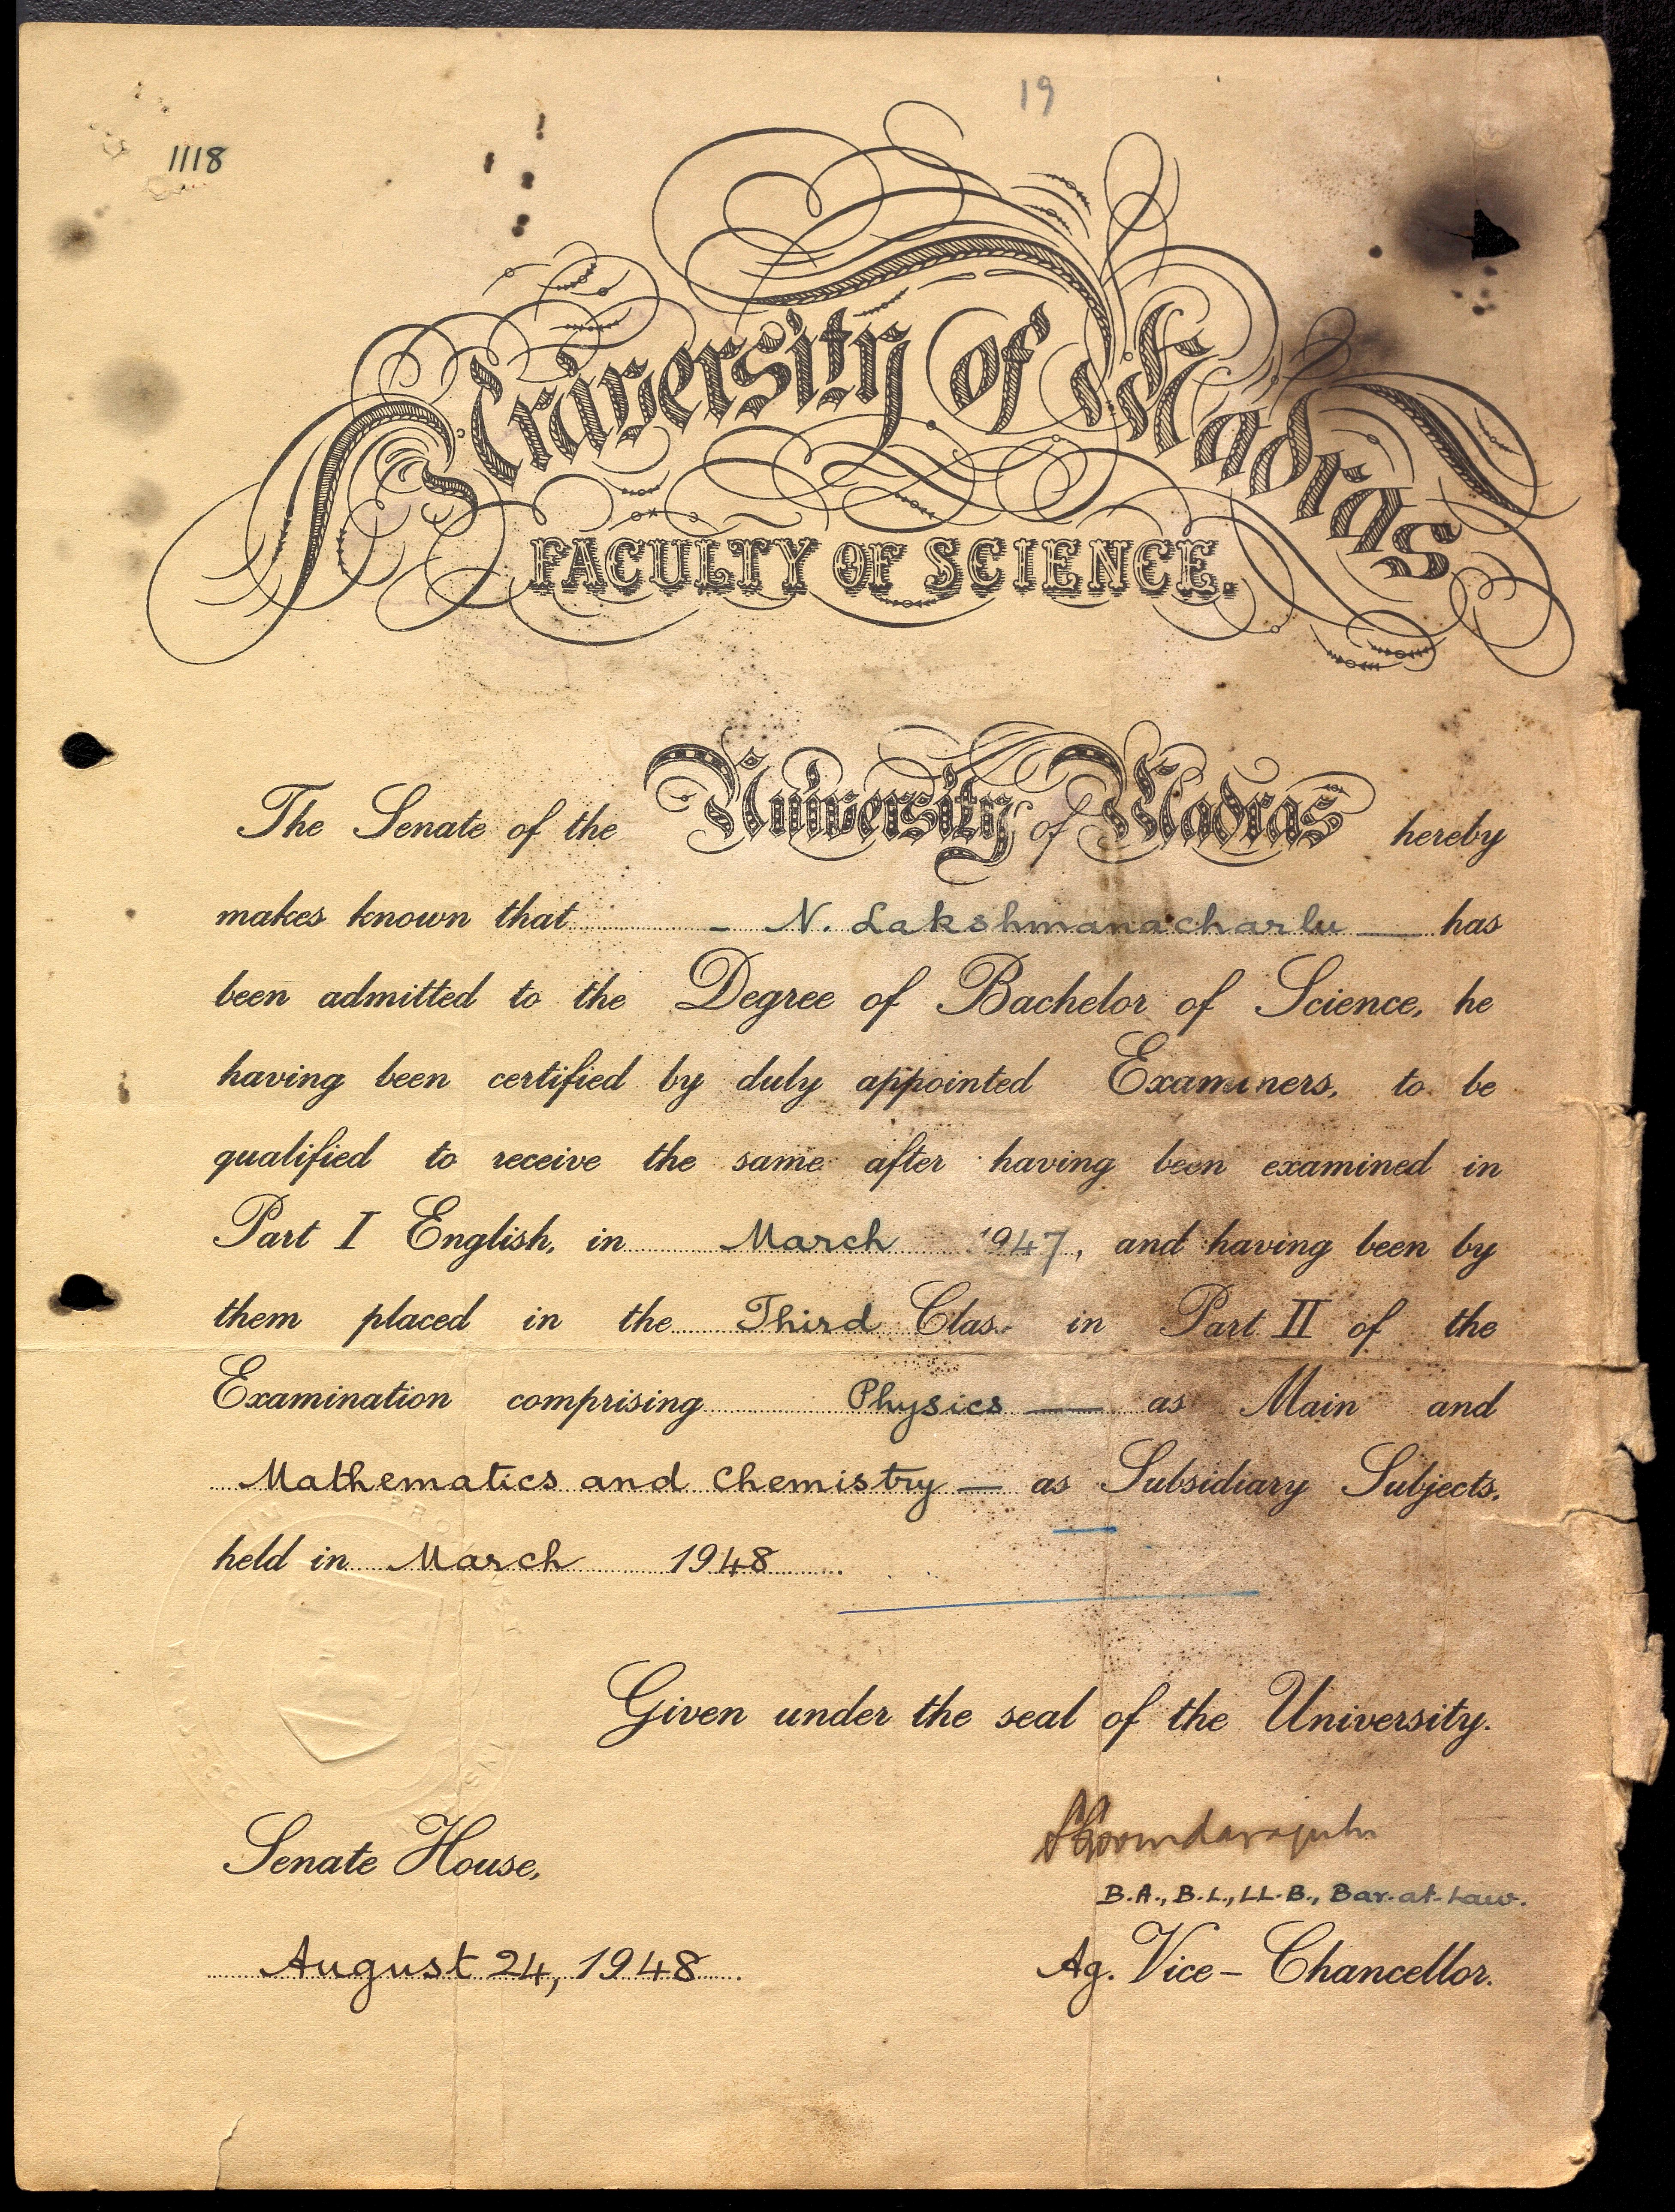 19
1118
University of Madras
FACULTY OF SCIENCE.
The Senate of the University of Madras hereby
makes known that - N. Lakshmanacharlu — has
been admitted to the Degree of Bachelor of Science, he
having been certified by duly appointed Examiners, to be
qualified to receive the same after having been examined in
Part I English, in March 1947, and having been by
them placed in the Third Class in Part II of the
Examination comprising Physics — as Main and
Mathematics and Chemistry — as Subsidiary Subjects,
held in March 1948.
Given under the seal of the University.
Senate House,
B.A., B.L., LL.B., Bar-at-Law.
August 24, 1948.
Ag. Vice-Chancellor.